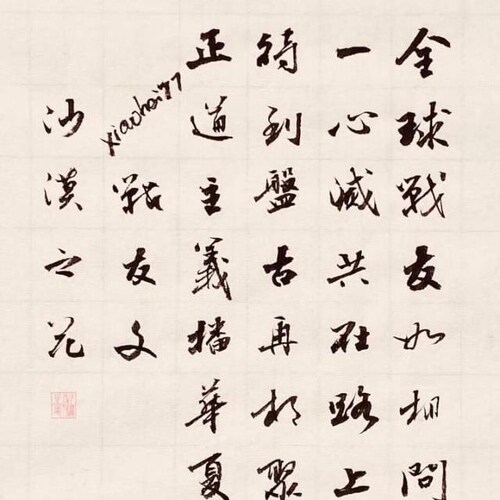 全球戰友如相問
一心滅共在路上
待到盤古再相聚
正道主義播華夏
xiaohei77
戰友文
沙漠之花